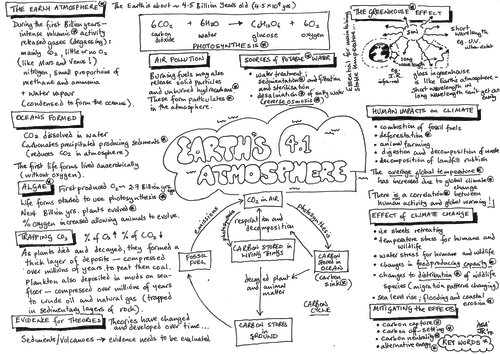 THE EARTH'S ATMOSPHERE
The Earth is about ~ 4.5 Billion Years old (4.5 x 10⁹ yrs)
During the first Billion years -
intense volcanic activity
released gases (degassing):
mainly CO₂, little or no O₂
(like Mars and Venus!)
nitrogen, small proportions of
methane and ammonia
+ water vapour
(condensed to form the oceans).
6CO₂ + 6H₂O → C₆H₁₂O₆ + 6O₂
carbon dioxide water glucose oxygen
PHOTOSYNTHESIS
AIR POLLUTION
Burning fuels may also
release solid particles
and unburned hydrocarbons
These form particulates
in the atmosphere.
SOURCES of POTABLE WATER
• water treatment:
sedimentation and filtration
and sterilisation
• desalination of salty water
(reverse osmosis)
THE GREENHOUSE EFFECT
sun
short
wavelength
eg. UV
I.R
infrared
glass in greenhouse
is like Earth's atmosphere -
short wavelength in
long wavelength can't get out
OCEANS FORMED
CO₂ dissolved in water
Carbonates precipitated producing sediments
(reduces CO₂ in atmosphere)
The first life forms lived anaerobically
(without oxygen).
ALGAE
First produced O₂ ~ 2.7 Billion yrs.
Life forms started to use photosynthesis
Next Billion yrs. plants evolved
% oxygen increased allowing animals to evolve.
TRAPPING CO₂
% of O₂ ↑ % of CO₂ ↓
As plants died and decayed, they formed a
thick layer of deposits - compressed
over millions of years to peat then coal.
Plankton also deposited in muds on sea-
floor - compressed over millions of years
to crude oil and natural gas (trapped
in sedimentary layers of rock).
EVIDENCE FOR THEORIES
Theories have changed
and developed over time...
Sediments/Volcanoes → evidence needs to be evaluated
EARTH'S 4.1
ATMOSPHERE
CO₂ IN AIR
Emissions
photosynthesis
respiration and
decomposition
photosynthesis
FOSSIL
FUEL
CARBON STORED IN
LIVING THINGS
CARBON
STORED
IN OCEAN
(carbon
sink)
decay of plant
and animal
matter
CARBON
CYCLE
CARBON STORES
IN GROUND
HUMAN IMPACTS ON CLIMATE
• combustion of fossil fuels
• deforestation
• animal farming
• digestion and decomposition of waste
• decomposition of landfill rubbish
The average global temperature
has increased due to global climate
change
[There is a correlation between
human activity and global warming!]
EFFECT OF CLIMATE CHANGE
• ice sheets retreating
• temperature stress for humans and
wildlife
• water stress for humans and wildlife
• changes in food producing capacity
• changes to distribution of wildlife
species (migration patterns changing)
• sea level rise; flooding and coastal
erosion
MITIGATING THE EFFECTS
• carbon capture
• carbon off-setting
• carbon neutrality
• alternative energy
KEY WORDS